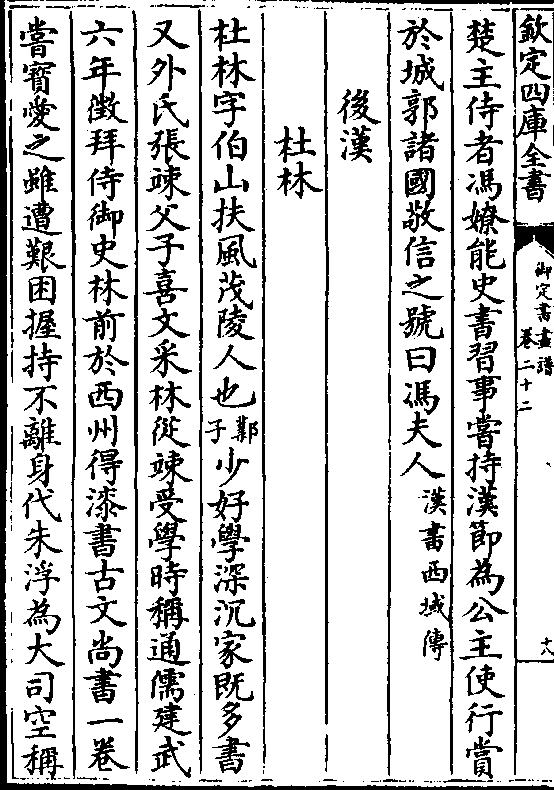 欽定四庫全書
御定書畫譜
卷二十二
十八
楚主侍者馮嫽能史書習事嘗持漢節為公主使行賞
於城郭諸國敬信之號曰馮夫人漢書西域傳
後漢
杜林
杜林字伯山扶風茂陵人也鄴子少好學深沉家既多書
又外氏張竦父子喜文采林從竦受學時稱通儒建武
六年徵拜侍御史林前於西州得漆書古文尚書一卷
嘗寳愛之雖遭艱困握持不離身代朱浮為大司空稱